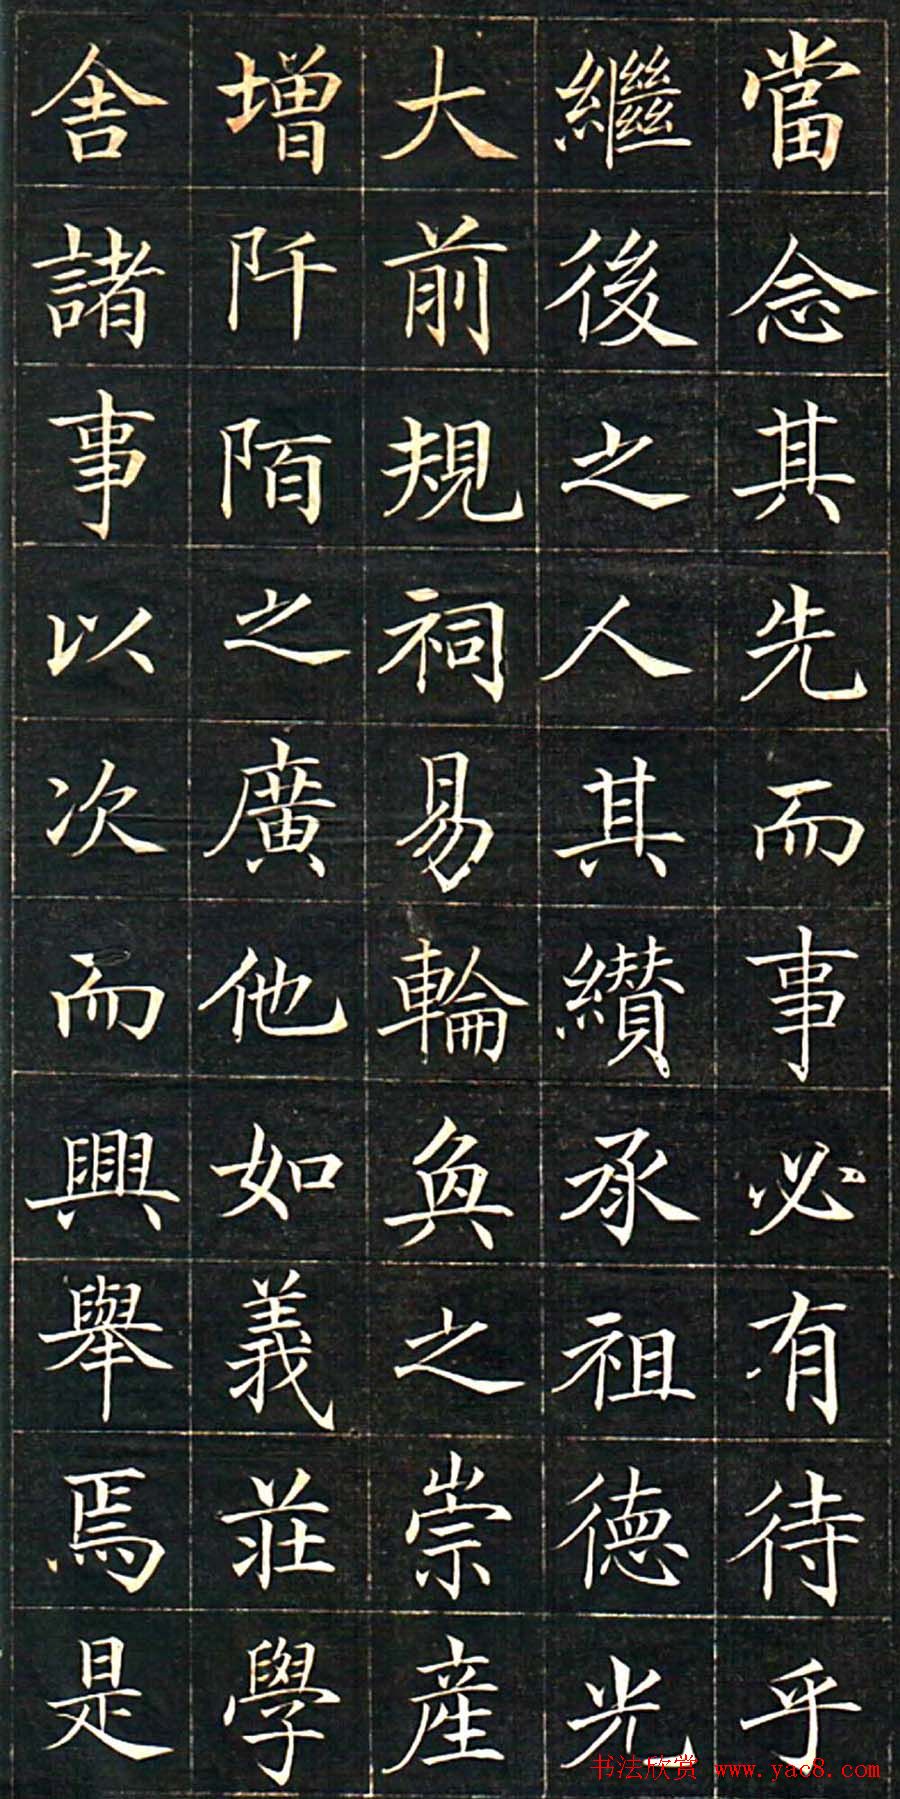 當念其先而事必有待乎
繼後之人其纘承祖德光
大前規祠易輪奐之崇產
增阡陌之廣他如義莊學
舍諸事以次而興舉焉是
书法欣赏 www.yac8.com